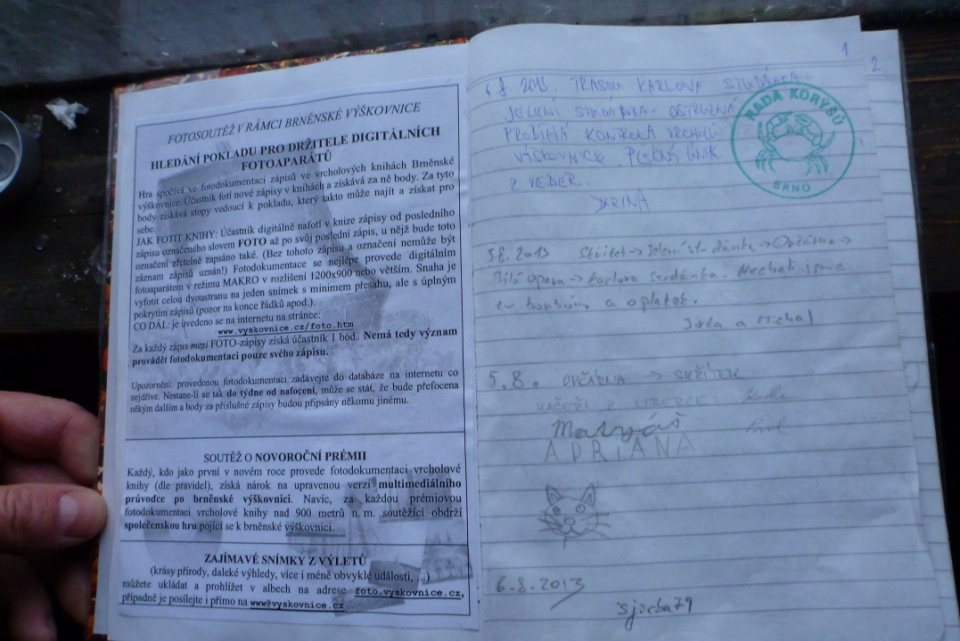 FOTOSOUTĚŽ V RÁMCI BRNĚNSKÉ VÝŠKOVNICE
HLEDÁNÍ POKLADU PRO DRŽITELE DIGITÁLNÍCH
FOTOAPARÁTŮ
Hra spočívá ve fotodokumentaci zápisů ve vrcholových knihách Brněnské
výškovnice. Účastník fotí nové zápisy v knihách a získává za ně body. Za tyto
body získává stopy vedoucí k pokladu, který takto může najít a získat pro
sebe.
JAK FOTIT KNIHY: Účastník digitálně nafotí v knize zápisy od posledního
zápisu označeného slovem FOTO až po svůj poslední zápis, u nějž bude toto
označení zřetelně zapsáno také. (Bez tohoto zápisu a označení nemůže být
záznam zápisů uznán!) Fotodokumentace se nejlépe provede digitálním
fotoaparátem v režimu MAKRO v rozlišení 1200x900 nebo větším. Snaha je
vyfotit celou dvoustranu na jeden snímek s minimem přesahu, ale s úplným
pokrytím zápisů (pozor na konce řádků apod.).
CO DÁL: je uvedeno se na internetu na stránce:
www.vyskovnice.cz/foto.htm
Za každý zápis mezi FOTO-zápisy získá účastník 1 bod. Nemá tedy význam
provádět fotodokumentaci pouze svého zápisu.
Upozornění: provedenou fotodokumentaci zadávejte do databáze na internetu co
nejdříve. Nestane-li se tak do týdne od nafocení, může se stát, že bude přefocena
někým dalším a body za příslušné zápisy budou připsány někomu jinému.
SOUTĚŽ O NOVOROČNÍ PRÉMII
Každý, kdo jako první v novém roce provede fotodokumentaci vrcholové
knihy (dle pravidel), získá nárok na upravenou verzi multimediálního
průvodce po brněnské výškovnici. Navíc, za každou prémiovou
fotodokumentaci vrcholové knihy nad 900 metrů n. m. soutěžící obdrží
společenskou hru pojící se k brněnské výškovnici.
ZAJÍMAVÉ SNÍMKY Z VÝLETŮ
(krásy přírody, daleké výhledy, více i méně obvyklé události, ...)
můžete ukládat a prohlížet v albech na adrese foto.vyskovnice.cz,
případně je posílejte i přímo na www@vyskovnice.cz
1
2
2013. TRASOU KARLOVA STUDÁNKA -
JELENÍ STUDÁNKA - OSTRUŽNÁ
PROBÍHÁ KONTROLA VRCHOLŮ
VÝŠKOVNICE. ÚNIK
Z VEDER.
DARINA
RADA KORÝŠŮ
BRNO
5.8. 2013 Skřítek -> Jelení studánka -> Ovčárna ->
Bílá Opava -> Karlova Studánka. Nechali jsme
tu bonbóny a oplatek.
Jirka a Michal
5.8. OVČÁRNA -> SKŘÍTEK
Z LIBERCE
Matyáš
ADRIANA
6.8.2013
sjorba79